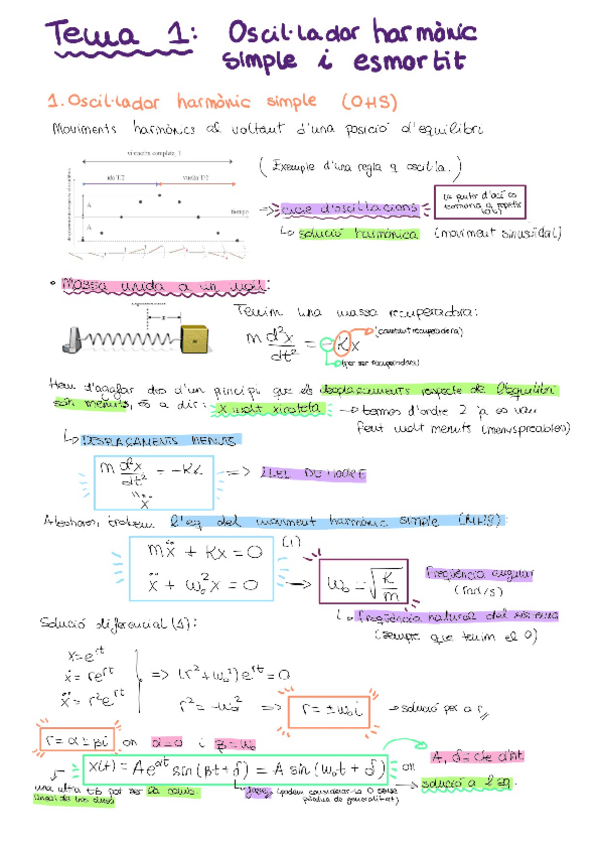 Tema 1: Oscil·lador harmònic
simple i esmortit
1. Oscil·lador harmònic simple (OHS)
Moviments harmònics al voltant d'una posició d'equilibri
vibración completa T
(Exemple d'una regla q oscil·la.)
ida T/2
vuelta T/2
A
tiempo
A
=> cicle d'oscil·lacions
(a partir d'ací es
tornaria a repetir
↳ solució harmònica (moviment sinusoïdal)
• Massa unida a un moll:
x
Tenim una massa recuperadora:
m d²x/dt² = -Kx
(constant recuperadora)
(per ser recuperadora)
Hem d'agafar des d'un principi que els desplaçaments respecte de l'equilibri
són menuts, és a dir: x molt xicoteta → termes d'ordre 2 ja es van
fent molt menuts (menyspreables)
↳ DESPLAÇAMENTS MENUTS
m d²x/dt² = -Kx => LLEI DE HOOKE
ẍ
Aleshores, trobem l'eq del moviment harmònic simple (MHS):
mẍ + Kx = 0 (1)
ẍ + ω₀²x = 0 → ω₀ = √(K/m)
freqüència angular
(rad/s)
↳ freqüència natural del sistema
(sempre que tenim el 0)
Solució diferencial (1):
x = e^rt
ẋ = re^rt => (r² + ω₀²)e^rt = 0
ẍ = r²e^rt
r² = -ω₀² => r = ±ω₀i → solució per a r
r = α ± βi on α = 0 i β = ω₀
x(t) = Ae^αt sin(βt + δ) = A sin(ω₀t + δ) on A, δ = cte d'int
una altra tb pot ser la comb.
lineal de les dues
↳ fase (podem considerar-la 0 sense
pèrdua de generalitat)
→ solució a l'eq.